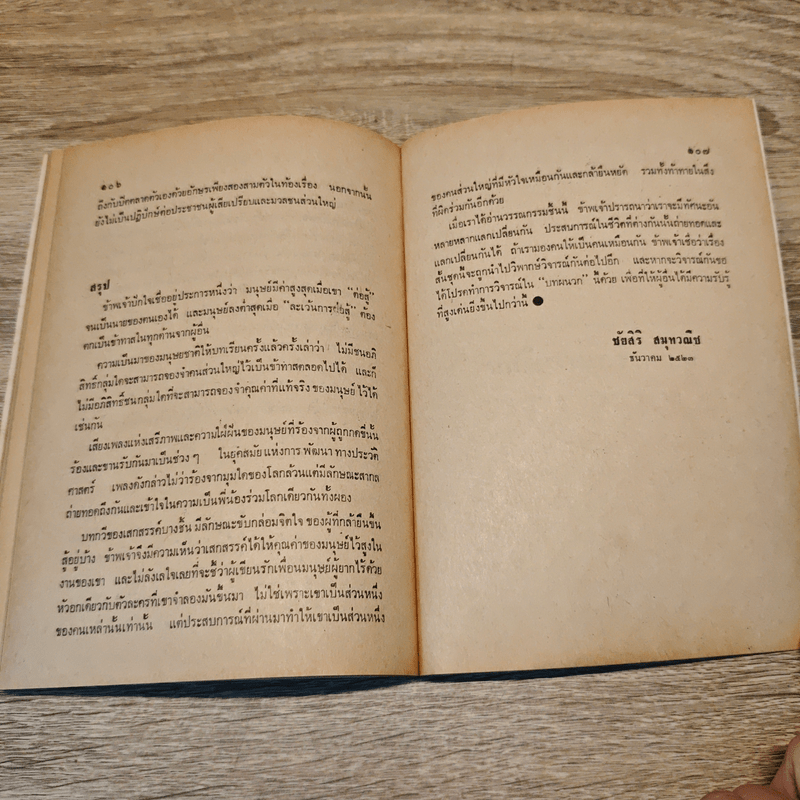 ๑๐๖
ถึงกับมืดคลาดตัวเองด้วยอักษรเพียงสองสามตัวในท้องเรื่อง นอกจากนั้น
ยังไม่เป็นปฏิปักษ์ต่อประชาชนผู้เสียเปรียบและมวลชนส่วนใหญ่
สรุป
ข้าพเจ้าปักใจเชื่ออยู่ประการหนึ่งว่า มนุษย์มีค่าสูงสุดเมื่อเขา "ต่อสู้"
จนเป็นนายของตนเองได้ และมนุษย์ลงต่ำสุดเมื่อ "ละเว้นการต่อสู้" ต้อง
ตกเป็นข้าทาสในทุกด้านจากผู้อื่น
ความเป็นมาของมนุษยชาติให้บทเรียนครั้งแล้วครั้งเล่าว่า ไม่มีชนอภิ
สิทธิ์กลุ่มใดจะสามารถจองจำคนส่วนใหญ่ไว้เป็นข้าทาสตลอดไปได้ และก็
ไม่มีอภิสิทธิ์ชนกลุ่มใดที่จะสามารถจองจำคุณค่าที่แท้จริง ของมนุษย์ ไว้ได้
เช่นกัน
เสียงเพลงแห่งเสรีภาพและความใฝ่ฝันของมนุษย์ที่ร้องจากผู้ถูกกดขี่นั้น
ร้องและขานรับกันมาเป็นช่วง ๆ ในยุคสมัย แห่งการ พัฒนา ทางประวัติ
ศาสตร์ เพลงดังกล่าวไม่ว่าร้องจากมุมใดของโลกล้วนแต่มีลักษณะสากล
ถ่ายทอดถึงกันและเข้าใจในความเป็นพี่น้องร่วมโลกเดียวกันทั้งผอง
บทกวีของเสกสรรค์บางชิ้น มีลักษณะขับกล่อมจิตใจ ของผู้ที่กล้ายืนขึ้น
สู้อยู่บ้าง ข้าพเจ้าจึงมีความเห็นว่าเสกสรรค์ได้ให้คุณค่าของมนุษย์ไว้สูงใน
งานของเขา และไม่ลังเลใจเลยที่จะชี้ว่าผู้เขียนรักเพื่อนมนุษย์ผู้ยากไร้ด้วย
หัวอกเดียวกับตัวละครที่เขาจำลองมันขึ้นมา ไม่ใช่เพราะเขาเป็นส่วนหนึ่ง
ของคนเหล่านั้นเท่านั้น แต่ประสบการณ์ที่ผ่านมาทำให้เขาเป็นส่วนหนึ่ง
๑๐๗
ของคนส่วนใหญ่ที่มีหัวใจเหมือนกันและกล้ายืนหยัด รวมทั้งท้าทายในสิ่ง
ที่ผิดร่วมกันอีกด้วย
เมื่อเราได้อ่านวรรณกรรมชิ้นนี้ ข้าพเจ้าปรารถนาว่าเราจะมีทัศนะอัน
หลายหลากแลกเปลี่ยนกัน ประสบการณ์ในชีวิตที่ต่างกันนั้นถ่ายทอดและ
แลกเปลี่ยนกันได้ ถ้าเรามองคนให้เป็นคนเหมือนกัน ข้าพเจ้าเชื่อว่าเรื่อง
สั้นชุดนี้จะถูกนำไปวิพากษ์วิจารณ์กันต่อไปอีก และหากจะวิจารณ์กันขอ
ได้โปรดทำการวิจารณ์ใน "บทผนวก" นี้ด้วย เพื่อที่ให้ผู้อื่นได้มีความรับรู้
ที่สูงเด่นยิ่งขึ้นไปกว่านี้ ●
ชัยสิริ สมุทวณิช
ธันวาคม ๒๕๒๓